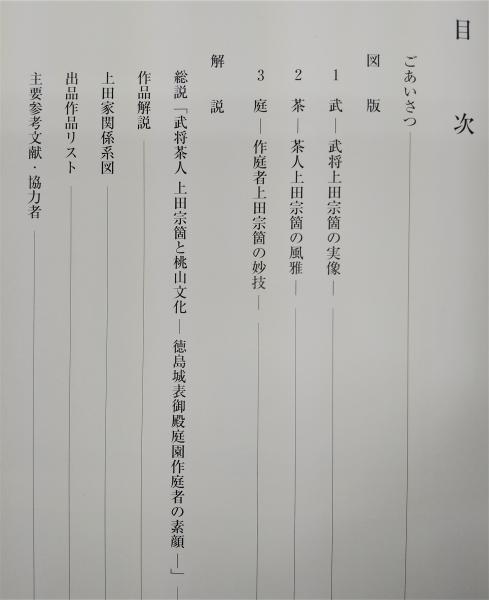 目次
ごあいさつ
図版
1 武―武将上田宗箇の実像―
2 茶―茶人上田宗箇の風雅―
3 庭―作庭者上田宗箇の妙技―
解説
総説「武将茶人 上田宗箇と桃山文化―徳島城表御殿庭園作庭者の素顔―」
作品解説
上田家関係系図
出品作品リスト
主要参考文献・協力者